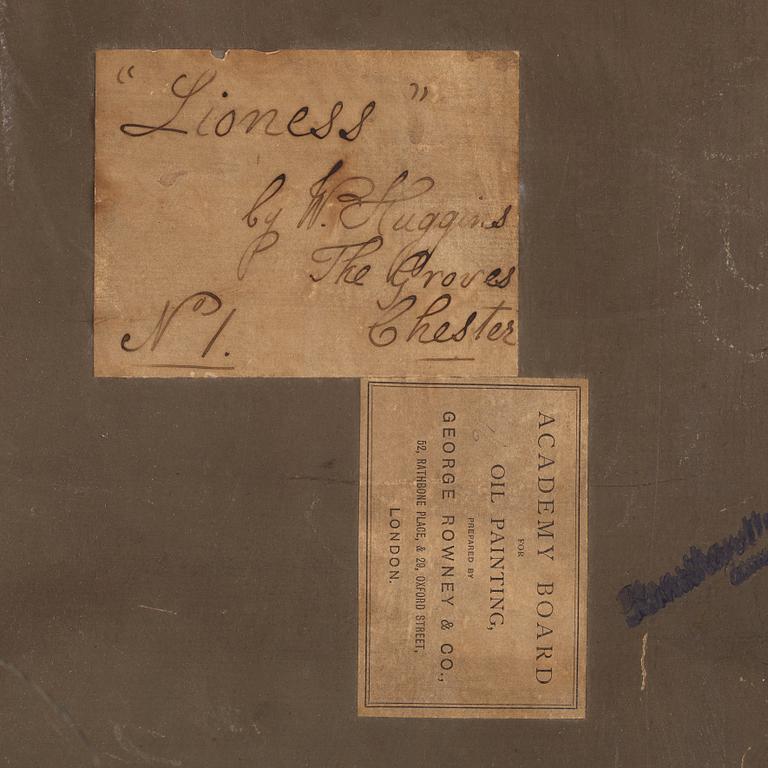 "Lioness"
by W. Huggins
The Groves
Chester
No 1.
ACADEMY BOARD
FOR
OIL PAINTING,
PREPARED BY
GEORGE ROWNEY & CO.,
52, RATHBONE PLACE, & 29, OXFORD STREET,
LONDON.